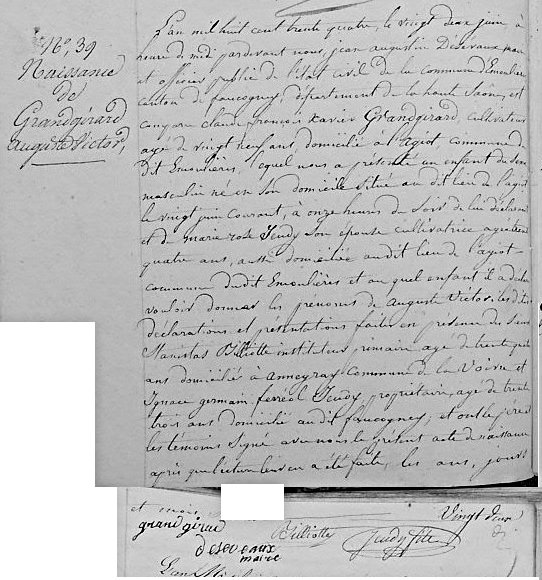 N°. 39
Naissance
de
Grandgirard
auguste Victor,
L'an mil huit cent trente quatre, le vingt deux juin, à
heure de midi pardevant nous, jean augustin Desevaux maire
et officier public de l'état civil de la commune d'Emoulières
canton de faucogney, département de la haute Saône, est
comparu claude françois Xavier Grandgirard, cultivateur
age de vingt neuf ans, domicilié à l'agiot, commune du
dit Emoulières, lequel nous a présenté un enfant du sexe
masculin né en son domicile situé au dit lieu de l'agiot
le vingt juin courant, à onze heures du soir de lui déclarant
et de marie rose Jeudy son épouse cultivatrice agée de
quatre ans, aussi domiciliée au dit lieu de l'agiot
commune dudit Emoulières et au quel enfant il a déclaré
vouloir donner les prenoms de auguste Victor, les dites
déclarations et présentations faites en présence du Sieurs
Stanislas Billiotte instituteur primaire agé de trente
ans domicilié à anneyray commune de la Voivre et
Ignace germain ferréol Jeudy, propriétaire, agé de trente
trois ans domicilié au dit faucogney; et ont le pere et
les témoins signé avec nous le présent acte de naissance
après que lecture leur en a été faite, les ans, jours
et mois Vingt deux
grandgirard Billiotte Jeudy fils
desevaux
maire